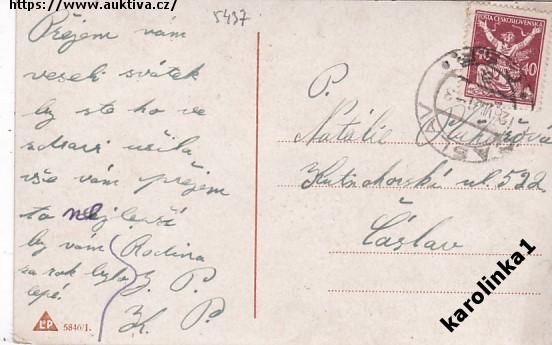 https://www.auktiva.cz/
5497
Přejem vám
veselí svátek
by ste ho ve
zdraví užila
vše vám přejem
to nejlepší
by vám Rodina
za rok bylo J. P.
lépé. K. P.
L&P 5840/I.
POŠTA ČESKOSLOVENSKÁ
40
ČÁSLAV
P.
Natálie
Kutnohorská ul. 522
Čáslav
karolinka1